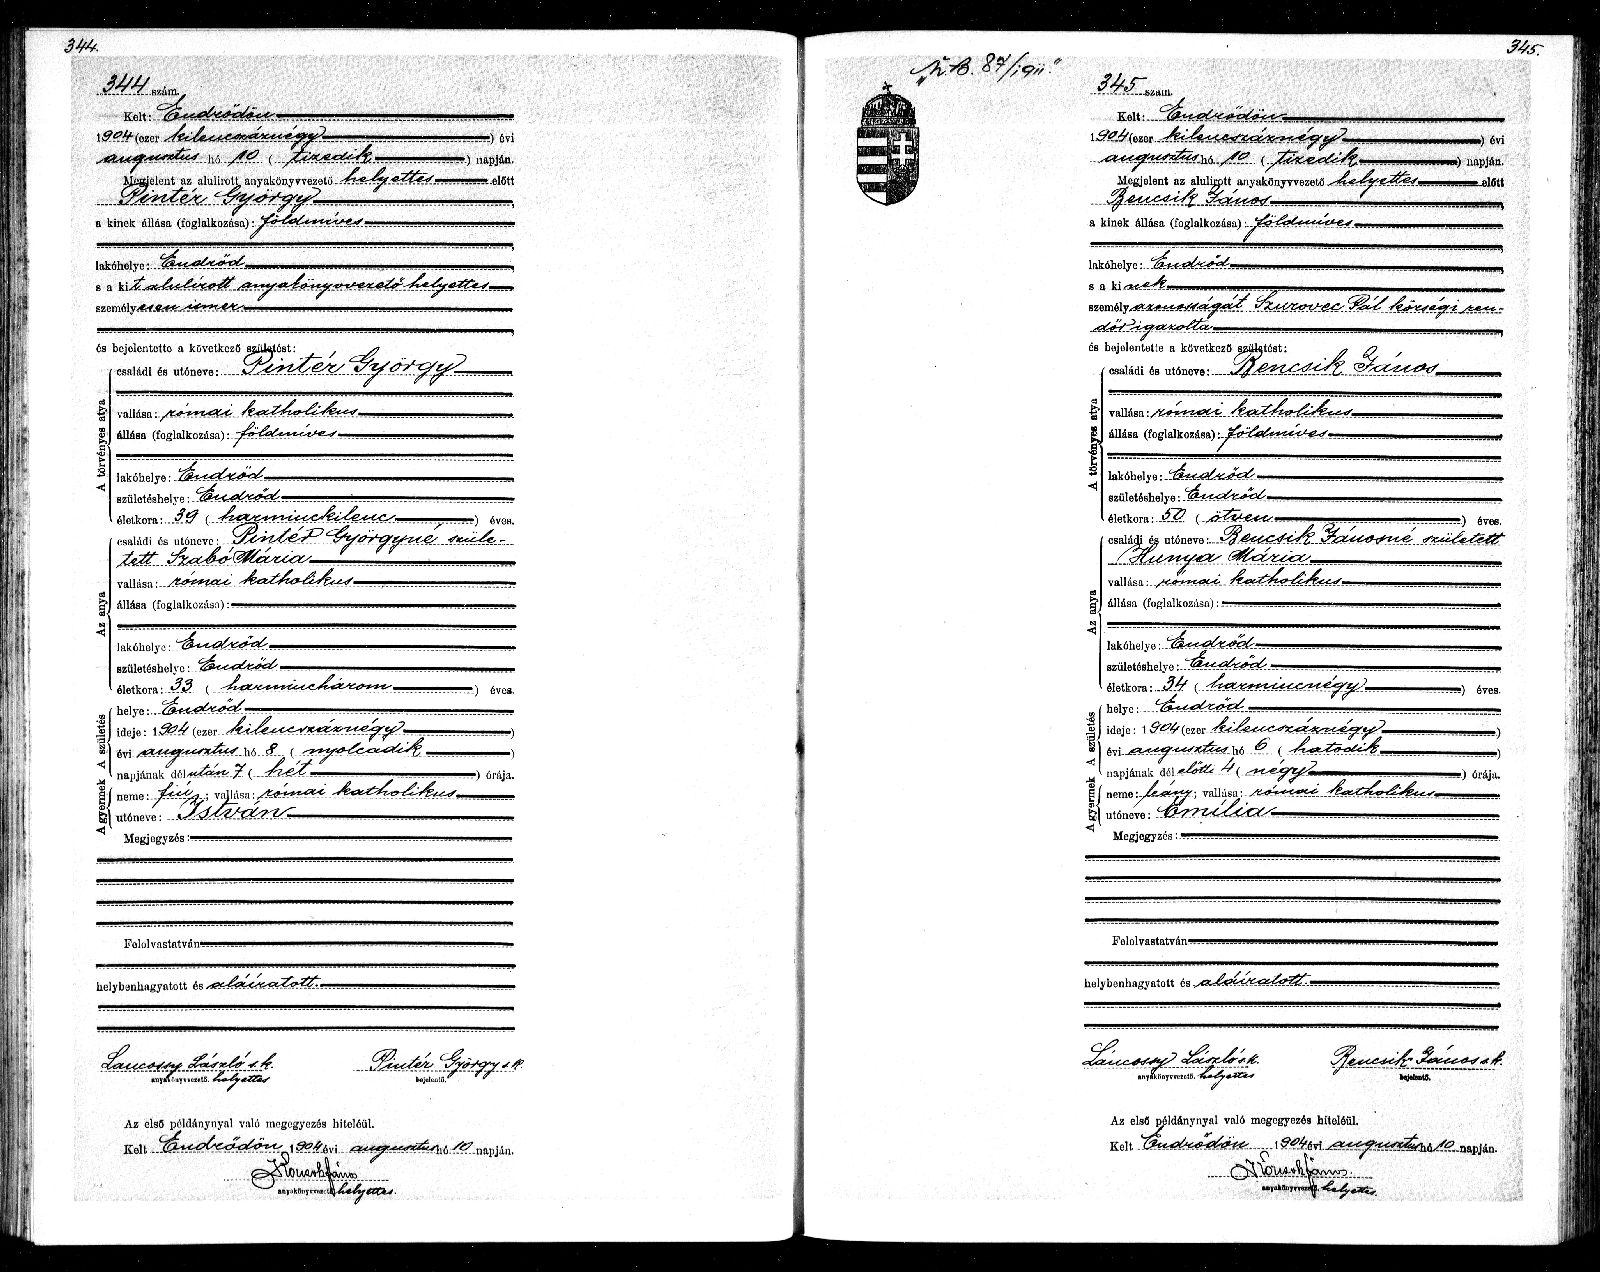 344.
344 szám.
Kelt: Endrődön
1904 (ezer kilenczáznégy) évi
augusztus hó 10 (tizedik) napján.
Megjelent az alulirott anyakönyvvezető helyettes előtt
Pintér György,
a kinek állása (foglalkozása): földmíves
lakóhelye: Endrőd
s a kit alulírott anyakönyvvezető helyettes
személyesen ismer
és bejelentette a következő születést:
A törvényes atya
családi és utóneve: Pintér György
vallása: római katholikus
állása (foglalkozása): földmíves
lakóhelye: Endrőd
születéshelye: Endrőd
életkora: 39 (harminckilenc) éves.
Az anya
családi és utóneve: Pintér Györgyné szüle-
tett Szabó Mária
vallása: római katholikus
állása (foglalkozása):
lakóhelye: Endrőd
születéshelye: Endrőd
életkora: 33 (harminchárom) éves.
A születés
helye: Endrőd
ideje: 1904 (ezer kilencszáznégy)
évi augusztus hó 8 (nyolcadik)
napjának dél után 7 (hét) órája.
A gyermek
neme: fiu; vallása: római katholikus
utóneve: István
Megjegyzés:
Felolvastatván
helybenhagyatott és aláíratott.
Lancossy László s.k. Pintér György s.k.
anyakönyvvezető. helyettes bejelentő.
Az első példánynyal való megegyezés hiteléül.
Kelt Endrődön, 1904 évi augusztus hó 10 napján.
János
anyakönyvvezető helyettes.
345.
87/1911."
345 szám.
Kelt: Endrődön
1904 (ezer kilencszáznégy) évi
augusztus hó 10 (tizedik) napján.
Megjelent az alulirott anyakönyvvezető helyettes előtt
Bencsik János
a kinek állása (foglalkozása): földmíves
lakóhelye: Endrőd
s a kinek
személyazonosságát Szurovec Pál községi ren-
dőr igazolta
és bejelentette a következő születést:
A törvényes atya
családi és utóneve: Bencsik János
vallása: római katholikus
állása (foglalkozása): földmíves
lakóhelye: Endrőd
születéshelye: Endrőd
életkora: 50 (ötven) éves.
Az anya
családi és utóneve: Bencsik Jánosné született
Hunya Mária
vallása: római katholikus
állása (foglalkozása):
lakóhelye: Endrőd
születéshelye: Endrőd
életkora: 34 (harmincnégy) éves.
A születés
helye: Endrőd
ideje: 1904 (ezer kilencszáznégy)
évi augusztus hó 6 (hatodik)
napjának dél előtti 4 (négy) órája.
A gyermek
neme: leány; vallása: római katholikus
utóneve: Emília
Megjegyzés:
Felolvastatván
helybenhagyatott és aláíratott.
Láncossy László s.k. Bencsik János s.k.
anyakönyvvezető. helyettes bejelentő.
Az első példánynyal való megegyezés hiteléül.
Kelt Endrődön 1904 évi augusztus hó 10 napján.
János
anyakönyvvezető. helyettes.